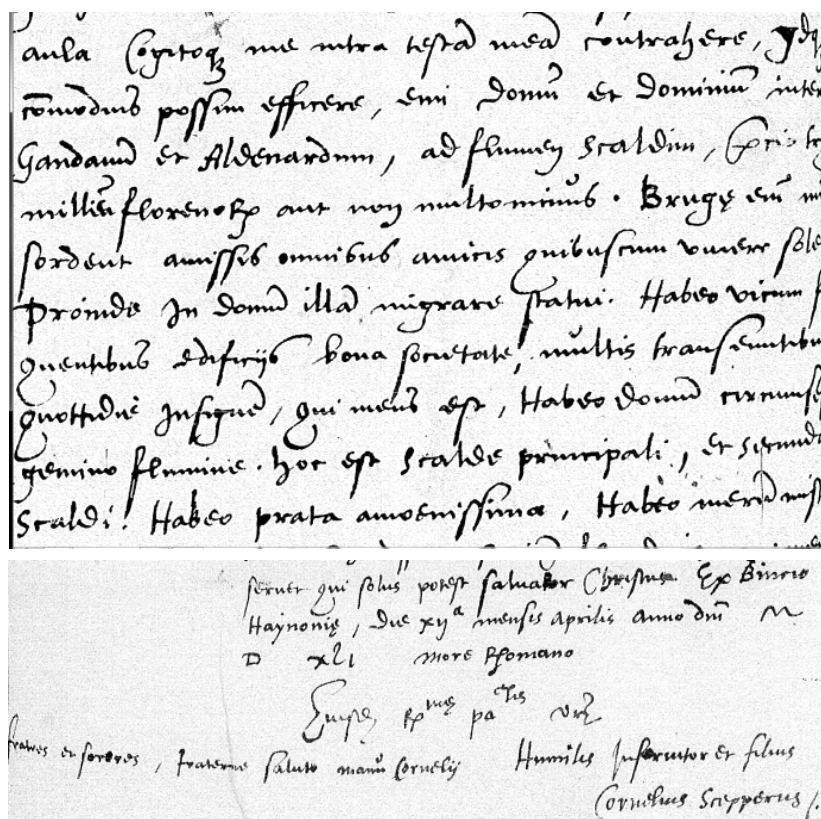 aula Cogitoqz me intra testā meā contrahere, Idqz
cōmodius possim efficere, emi domū et dominiū inter
Gandavū et Aldenardum, ad flumen Scaldim,
milleū florenorū aut non multominus. Brugę eīn
sordent amissis omnibus amicis quibuscum vivere sole
Proinde In domū illā migrare statui. Habeo vicum f
quentibus edificijs bona societate, multis transeuntibu
quottidie Insignē, qui meus est, Habeo domū circumse
gemino flumine. hoc est Scalde principali, et Secunda
Scaldi. Habeo prata amoenissima, Habeo
servet qui solus potest salvator Christus. Ex Bincio
Haynonię, die xijᵃ mensis Aprilis anno dnī M
D xLi more Rhomano
Eiusdē Rᵐᵉ paᵗⁱˢ vrę
fratres et sorores, fraterne saluto manu Cornelij Humilis Inservitor et filius
Cornelius Scepperus /.